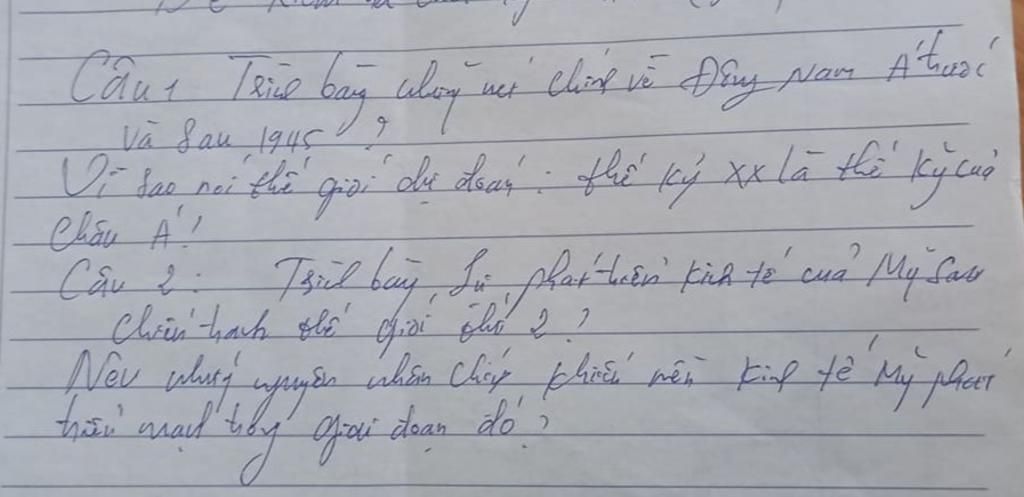 Câu 1 Trình bày những nét chính về Đông Nam Á trước
và sau 1945 ?
Vì sao nói thế giới dự đoán : thế kỷ XX là thế kỷ của
Châu Á !
Câu 2 : Trình bày sự phát triển kinh tế của Mỹ sau
chiến tranh thế giới thứ 2 ?
Nêu những nguyên nhân chính khiến nền kinh tế Mỹ phát
triển mạnh trong giai đoạn đó ?